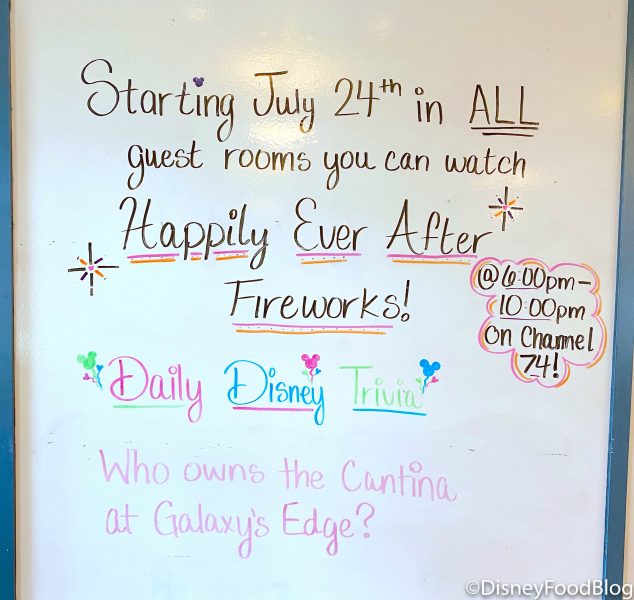 Starting July 24th in ALL
guest rooms you can watch
Happily Ever After
Fireworks!
@ 6:00pm-
10:00pm
On Channel
74!
Daily Disney Trivia
Who owns the Cantina
at Galaxy's Edge?
©DisneyFoodBlog